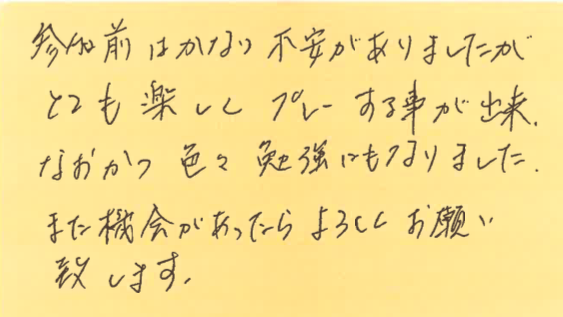 参加前はかなり不安がありましたが
とても楽しくプレーする事が出来、
なおかつ色々勉強にもなりました。
また機会があったらよろしくお願い
致します。